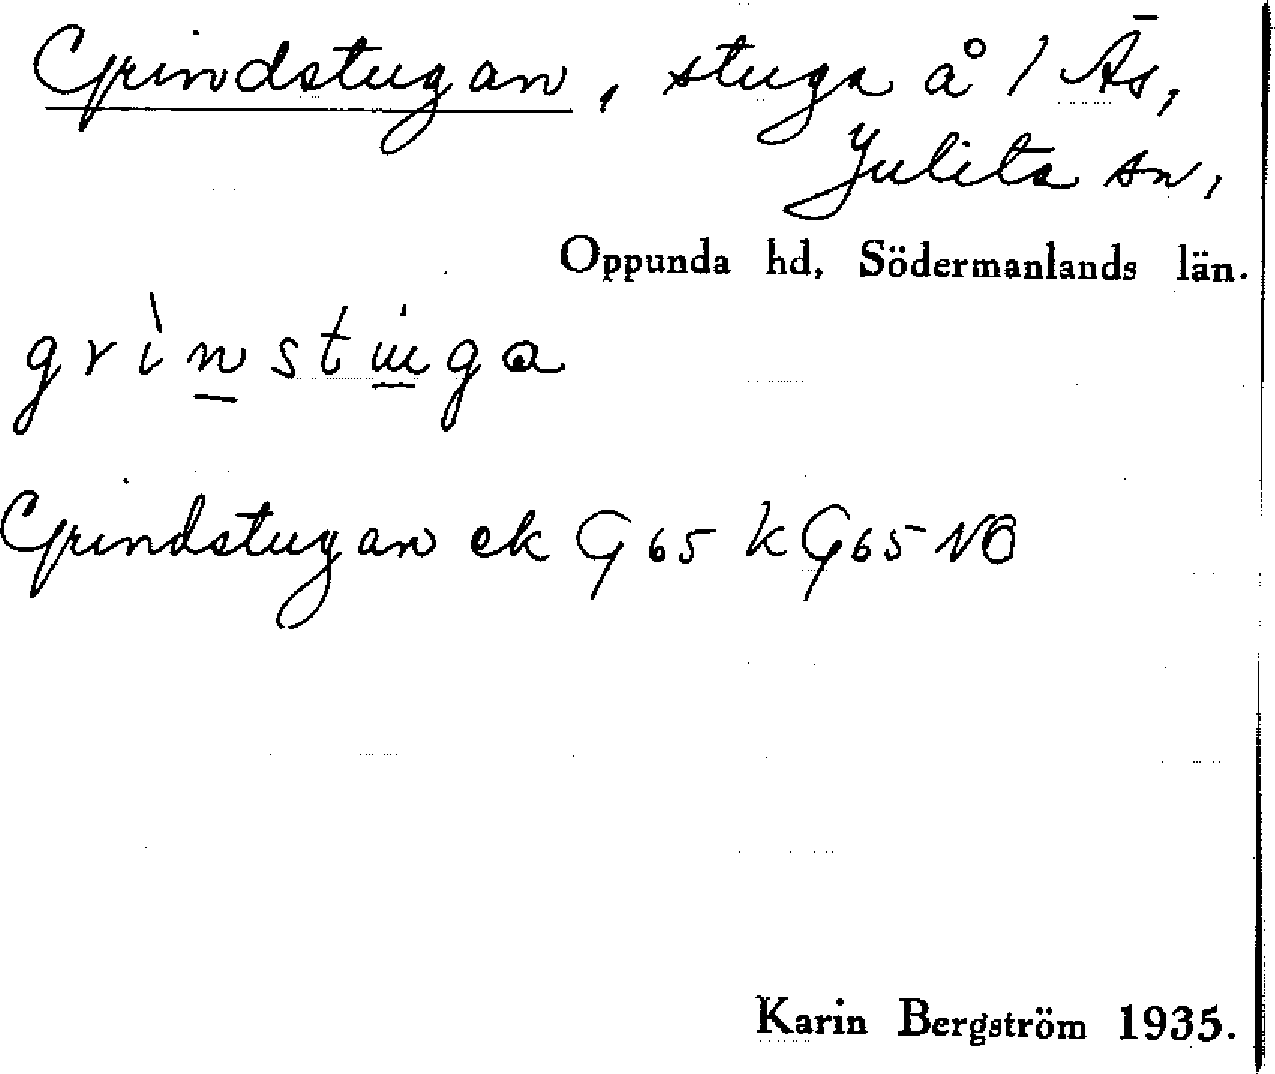 Grindstugan, stuga å 1 Äs,
Julita sn,
Oppunda hd, Södermanlands län.
grìnstuga
Grindstugan ek G 65 k G 65 NB
Karin Bergström 1935.